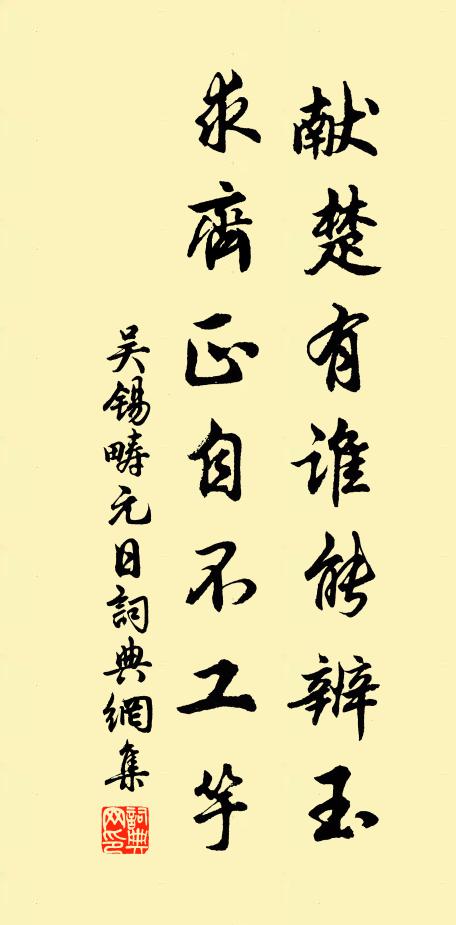 献楚有谁能辨玉
求齊正自不工竽
吴锡畴元日詞典網集
詞典网印